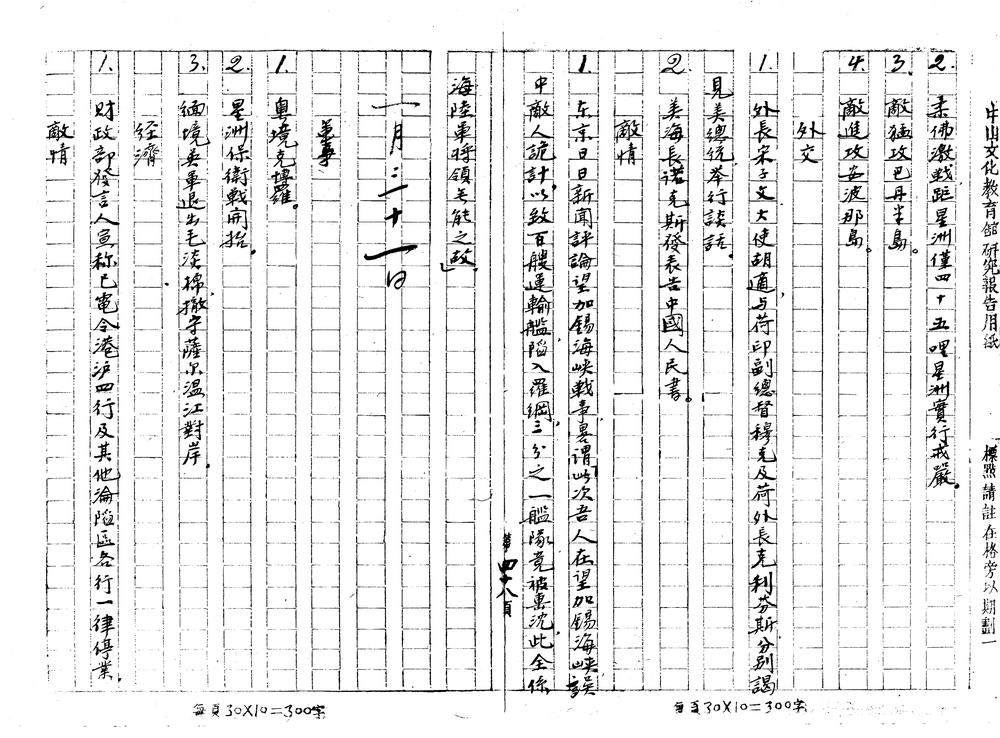 中山文化教育館研究報告用紙
標點請註在格旁以期劃一
2. 柔佛激戰距星洲僅四十五哩星洲實行戒嚴。
3. 敵猛攻巴丹半島。
4. 敵進攻安波那島。
外交
1. 外長宋子文大使胡適与荷印副總督穆克及荷外長克利芬斯分別謁
見美總統举行談話。
2. 美海長諾克斯發表告中國人民書。
敵情
1. 东京日日新聞評論望加錫海峽戰事畧謂「此次吾人在望加錫海峽誤
中敵人詭計，以致百艘運輸艦陷入羅網，三分之一艦隊竟被擊沈，此全係
海陸軍將領無能之故」
每頁30X10=300字
第四十八頁
一月三十一日
軍事
1. 粵境克博羅。
2. 星洲保衛戰開始。
3. 緬境英軍退出毛淡棉，撤守薩尔温江對岸。
经濟
1. 财政部發言人宣称已電令港沪四行及其他淪陷區各行一律停業。
敵情
每頁30X10=300字